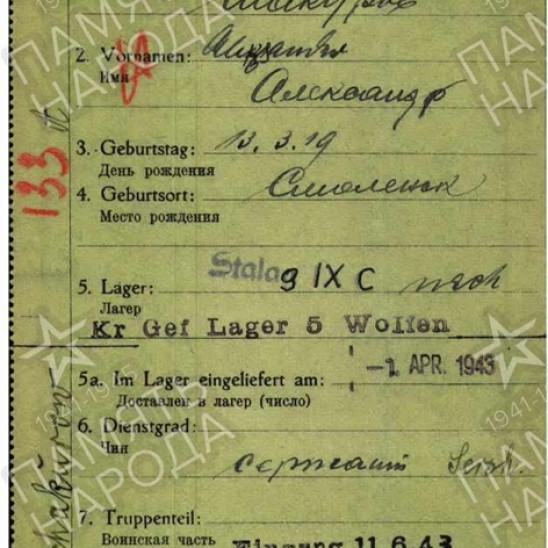 2. Vornamen:
Имя
Александр
3. Geburtstag: 13.3.19
День рождения
4. Geburtsort: Смоленск
Место рождения
Stalag IX C nach
5. Lager:
Лагер
Kr Gef Lager 5 Wolfen
-1. APR. 1943
5a. Im Lager eingeliefert am:
Доставлен в лагер (число)
6. Dienstgrad:
Чин
сержант
7. Truppenteil:
Воинская часть Eingang 11.6.43
133
ПАМЯТЬ НАРОДА
1941-1945